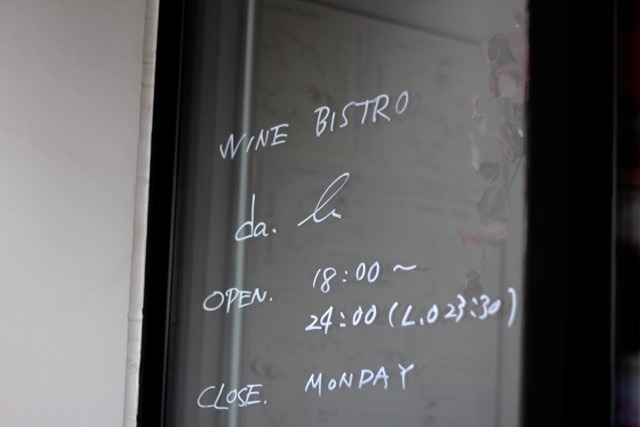 WINE BISTRO
da. h
OPEN. 18:00 ~
24:00 (L.O 23:30)
CLOSE. MONDAY